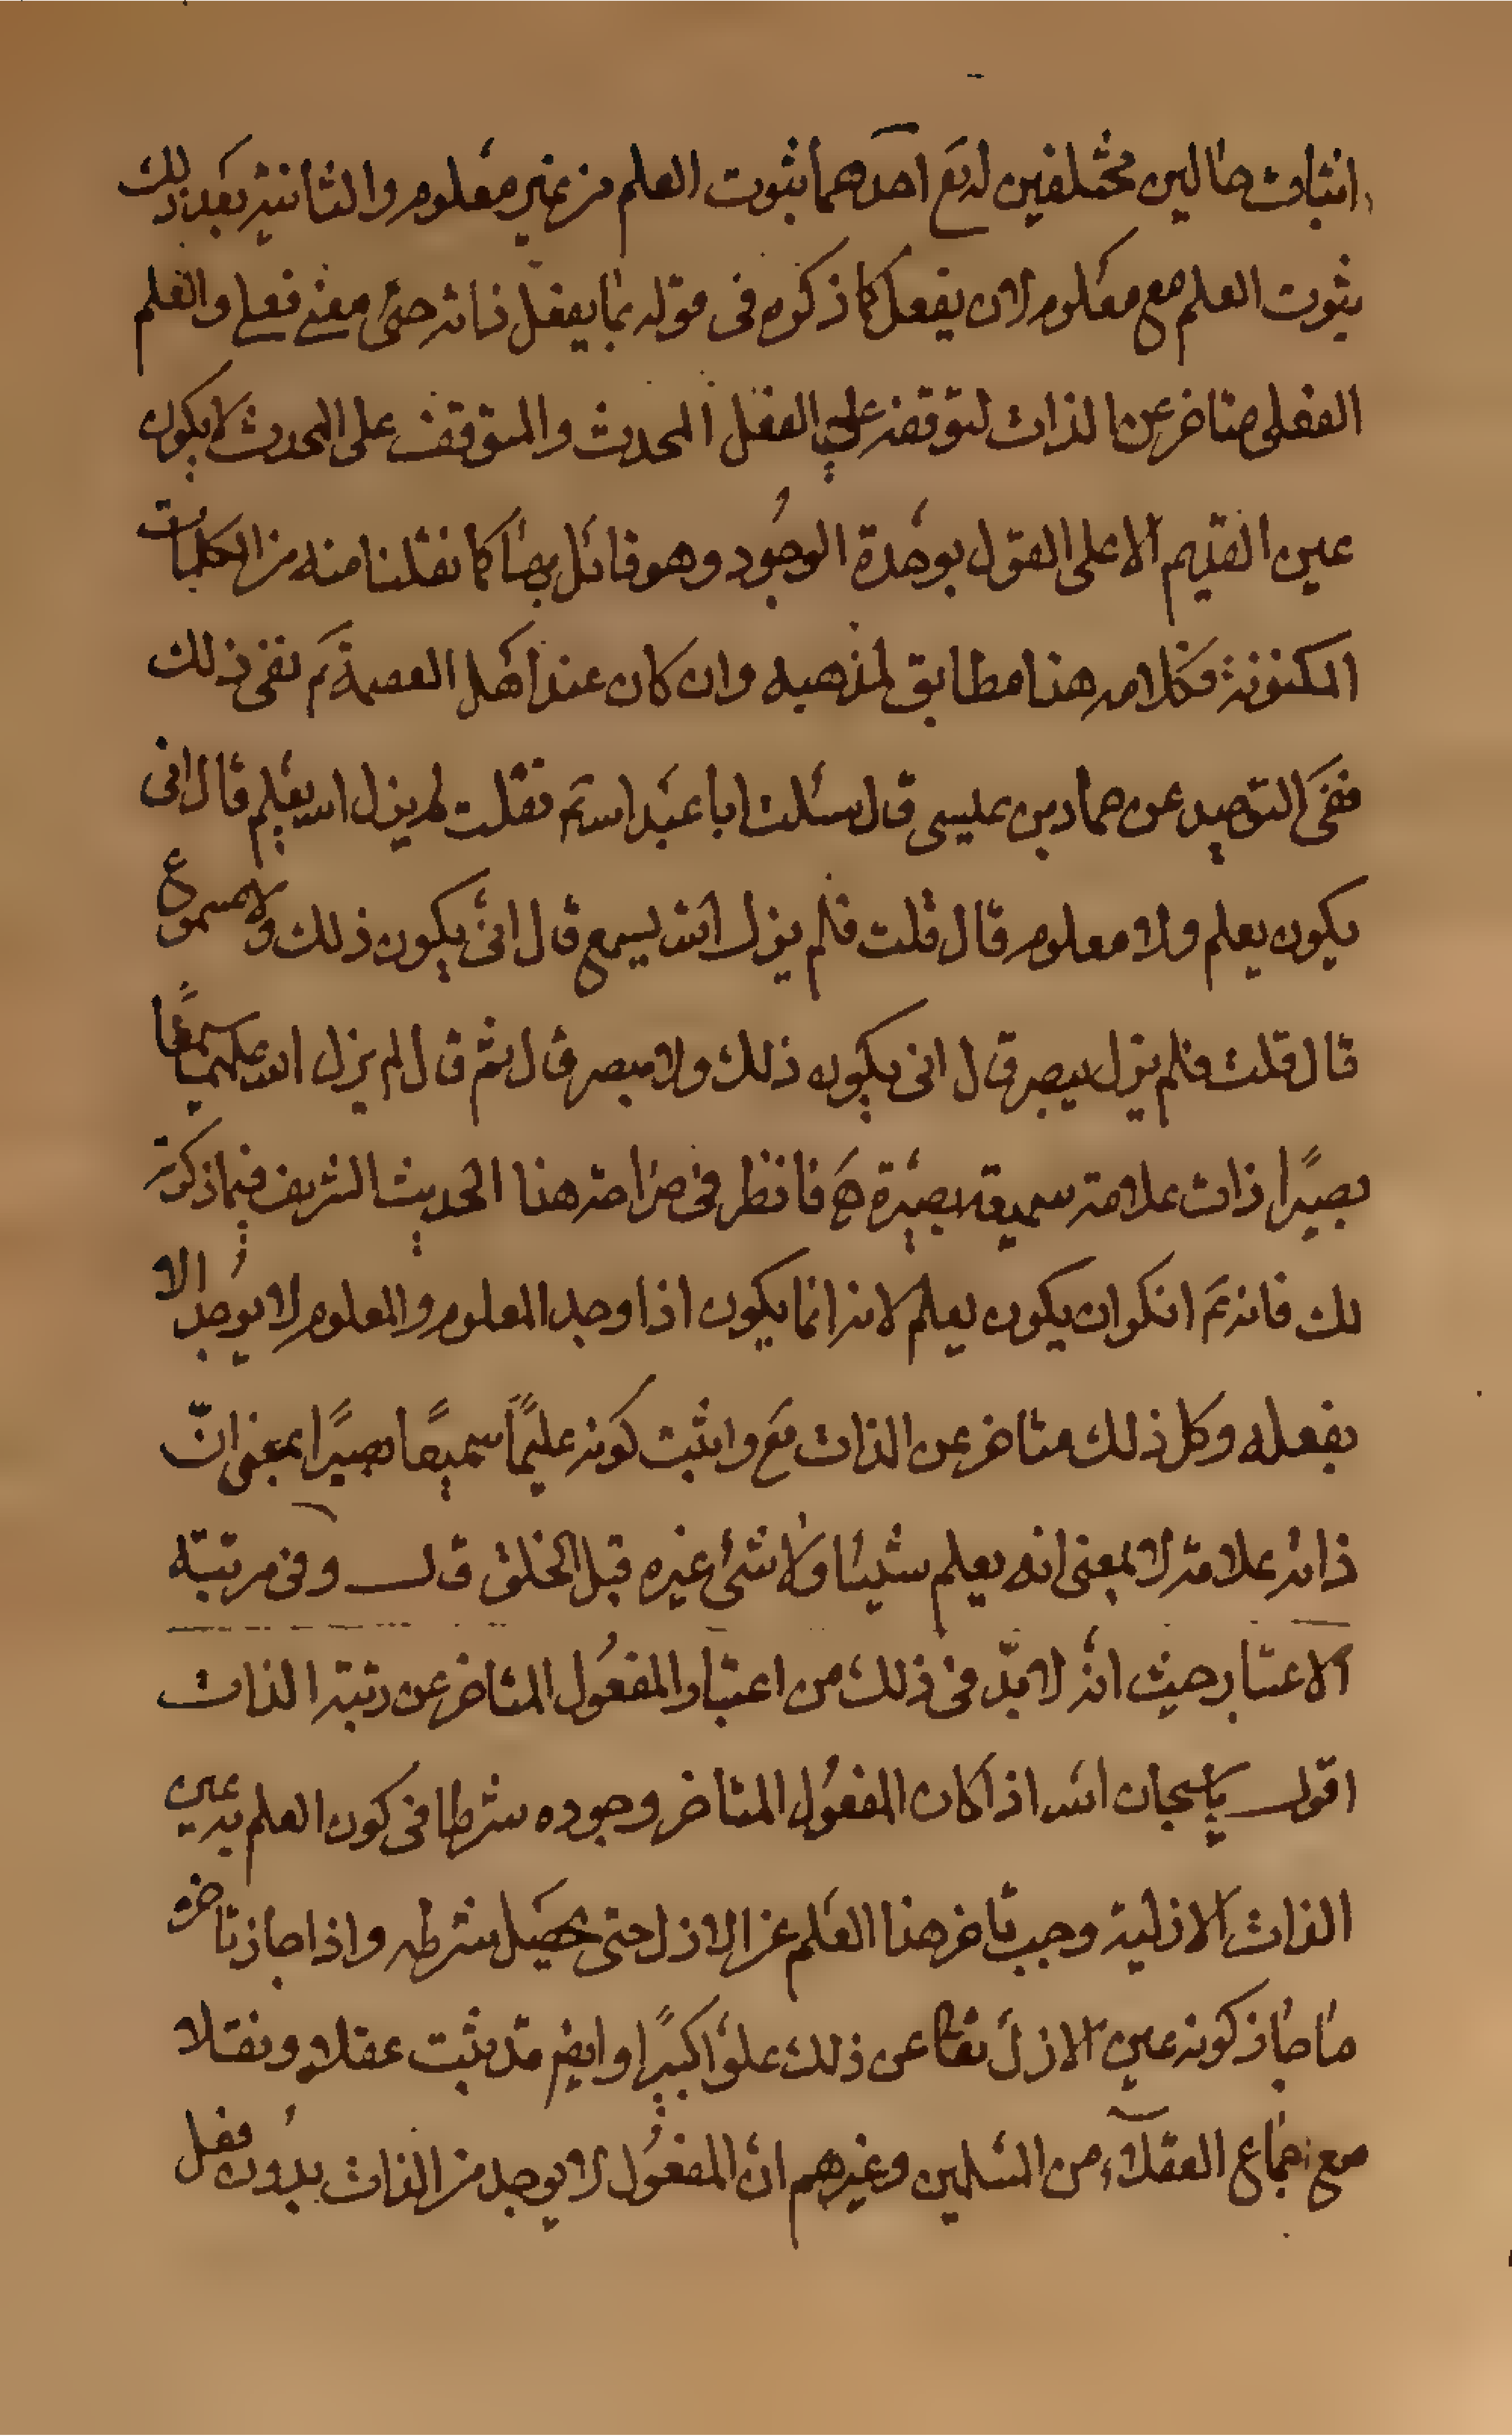 اثبات حالين مختلفين له تع احدهما ثبوت العلم من غير معلوم والثانية بعد ذلك
ثبوت العلم مع معلوم لان يفعل كما ذكره في قوله بما يفعل ذاته حتى معنى فعلى والعلم
الفعلى متاخر عن الذات لتوقفه على الفعل المحدث والمتوقف على المحدث لا يكون
عين القديم الا على القول بوحدة الوجود وهو قائل بها كما نقلنا منه من الكلمات
المكنونة فكلامه هذا مطابق لمذهبه وان كان عند اهل العصمة ع نفى ذلك
ففى التوحيد عن حماد بن عيسى قال سئلت ابا عبد الله ع فقلت لم يزل الله يعلم قال انى
يكون يعلم ولا معلوم قال قلت فلم يزل الله يسمع قال انى يكون ذلك ولا مسموع
قال قلت فلم يزل يبصر قال انى يكون ذلك ولا مبصر قال ثم قال لم يزل الله عليما سميعًا
بصيرًا ذات علامة سميعة بصيرة ه فانظر فى صراحة هذا الحديث الشريف فيما ذكرته
لك فانه ع انكر ان يكون يعلم لانه انما يكون اذا وجد المعلوم والمعلوم لا يوجد الا
بفعله وكل ذلك متاخر عن الذات تع واثبت كونه عليمًا سميعًا بصيرًا بمعنى انّ
ذاته علامة لا بمعنى انه يعلم شيئا ولا شئ غيره قبل الخلق قال وفى مرتبته
الاعتبار حيث انه لا بدّ فى ذلك من اعتبار المفعول المتاخر عن رتبة الذات
اقول يا سبحان الله اذا كان المفعول المتاخر وجوده شرطا فى كون العلم به عين
الذات الازلية وجب تاخر هذا العلم عن الازل حتى يحصل شرطه واذا جاز تاخره
ما جاز كونه عين الازل تعا عن ذلك علوًا كبيرًا وايضم قد ثبت عقلا ونقلا
مع اجماع العقلاء من المسلمين وغيرهم ان المفعول لا يوجد من الذات بدون فعل